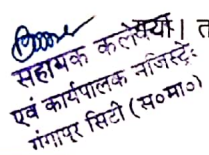 सहायक कलेक्टर
यी। त
एवं कार्यपालक मजिस्ट्रेट
गंगापुर सिटी (स०मा०)